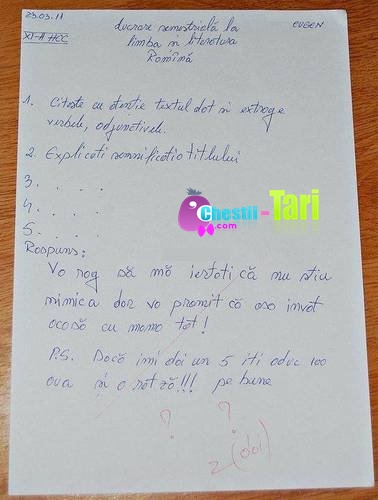 23.03.11
EUGEN
XI-A HCC
Lucrare semestrială la
limba și literatura
Română
1. Citește cu atenție textul dat și extrage
verbele, adjectivele.
2. Explicați semnificatia titlului
3. . . . .
4. . . . .
5. . . . .
Chestii-Tari
.com
Raspuns:
Va rog să mă iertati că nu stiu
nimica dar va promit că asa invat
acasă cu mama tot!
P.S. Dacă imi dai un 5 iti aduc 100
oua și o rat ză!!! pe bune
? ?
2 (doi)